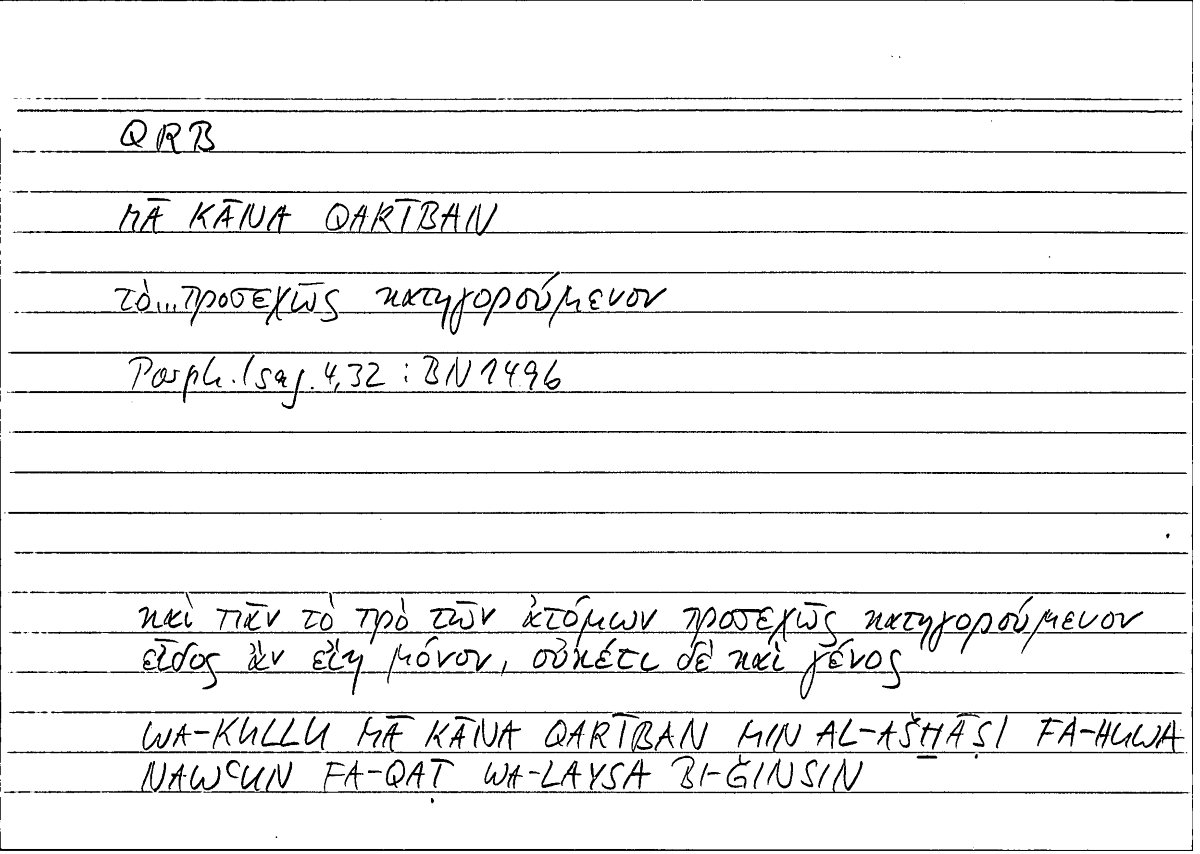 QRB
MĀ KĀNA QARĪBAN
τὸ...προσεχῶς κατηγορούμενον
Porph. Isag. 4,32 : BN 149b
καὶ πᾶν τὸ πρὸ τῶν ἀτόμων προσεχῶς κατηγορούμενον
εἶδος ἂν εἴη μόνον, οὐκέτι δὲ καὶ γένος
WA-KULLU MĀ KĀNA QARĪBAN MIN AL-AŠḪĀṢI FA-HUWA
NAWʿUN FA-QAṬ WA-LAYSA BI-ǦINSIN